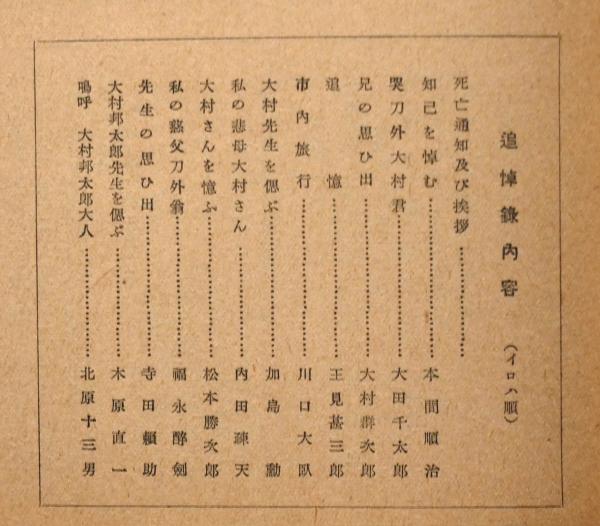 追悼錄內容（イロハ順）
死亡通知及び挨拶
知己を悼む 本間順治
哭刀外大村君 大田千太郎
兄の思ひ出 大村群次郎
追憶 王見甚三郎
市內旅行 川口大臥
大村先生を偲ぶ 加島勳
私の悲母大村さん 內田疎天
大村さんを憶ふ 松本勝次郎
私の慈父刀外翁 福永醉劍
先生の思ひ出 寺田賴助
大村邦太郎先生を偲ぶ 木原直一
嗚呼 大村邦太郎大人 北原十三男